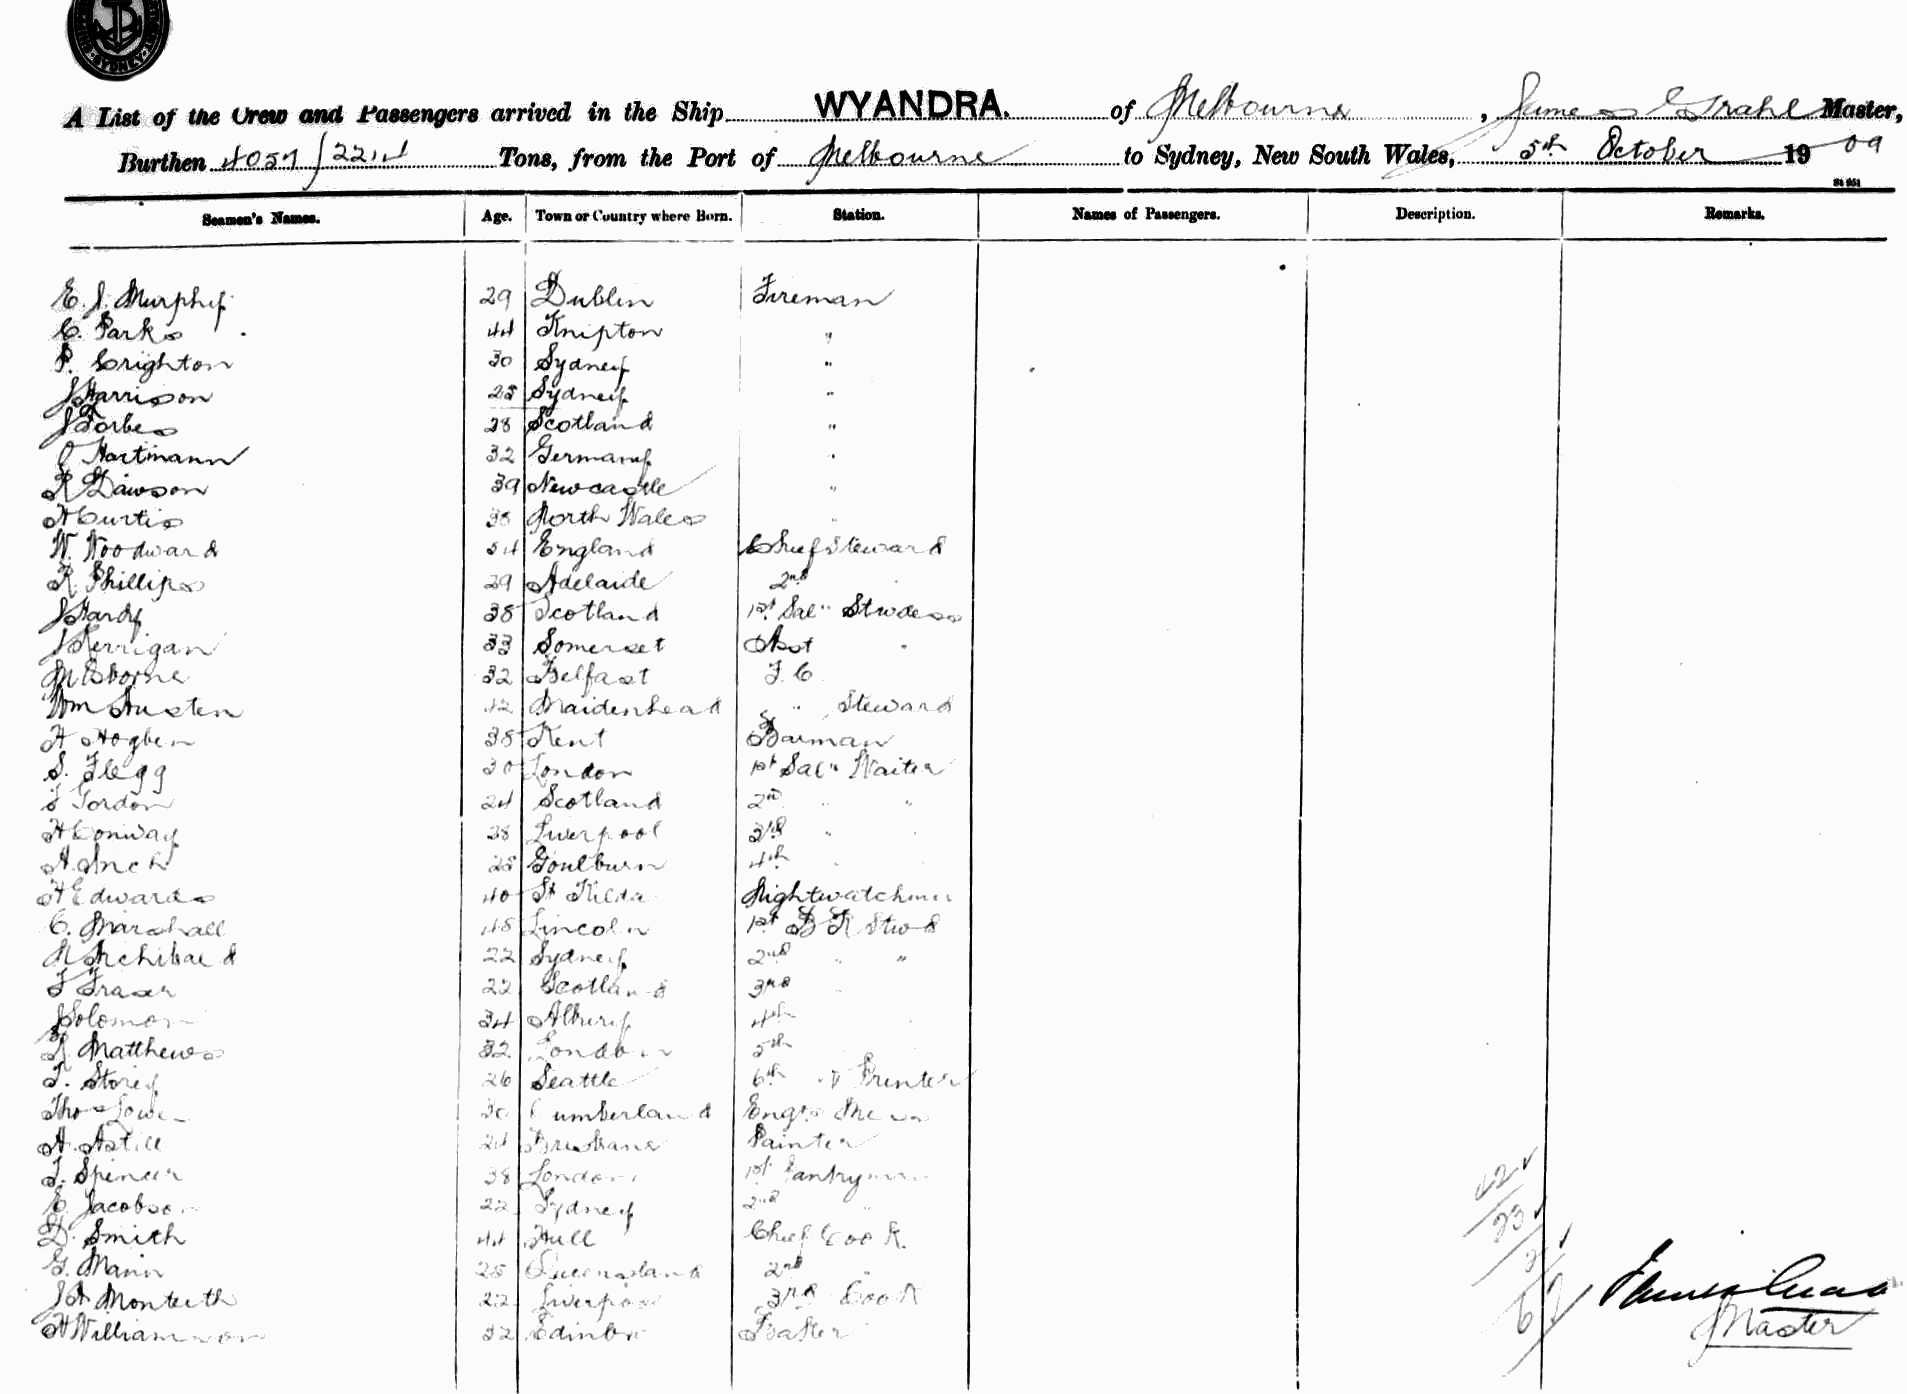 SYDNEY
A List of the Crew and Passengers arrived in the Ship WYANDRA. of Melbourne, James Grahl Master,
Burthen 4057/2214 Tons, from the Port of Melbourne to Sydney, New South Wales, 5th October 1909
Seamen's Names. Age. Town or Country where Born. Station. Names of Passengers. Description. Remarks.
E. J. Murphy 29 Dublin Fireman
C. Parks 44 Knipton "
P. Crighton 30 Sydney "
J Harrison 28 Sydney "
J Forbes 28 Scotland "
Hartmann 32 Germany "
R Dawson 39 Newcastle "
H Curtis 38 North Wales "
W. Woodward 54 England Chief Steward
R. Phillips 29 Adelaide 2nd "
J Hardy 38 Scotland 1st Sal" Stwdess
J Kerrigan 33 Somerset Asst "
M Osborne 32 Belfast F. C
Wm Austen 42 Maidenhead " Steward
H Hogben 38 Kent Barman
S. Flegg 30 London 1st Sal" Waiter
Gordon 24 Scotland 2nd " "
H Conway 38 Liverpool 3rd " "
A. Inch 28 Goulburn 4th "
H Edwards 40 St Kilda Nightwatchman
C. Marshall 48 Lincoln 1st B R Stwd
Archibald 22 Sydney 2nd " "
F Fraser 22 Scotland 3rd "
J Solomon 34 Albury 4th "
R Matthews 32 London 5th
T. Storey 26 Seattle 6th " & Printer
Thos Lowe 30 Cumberland Engrs Mess
A. Astill 24 Brisbane Painter
J. Spencer 38 London 1st Pantryman
E. Jacobson 22 Sydney 2nd "
D. Smith 44 Hull Chief Cook
G. Mann 28 Queensland 2nd "
J A Monteith 22 Liverpool 3rd Cook
H Williamson 32 Edinbro Baker
Master